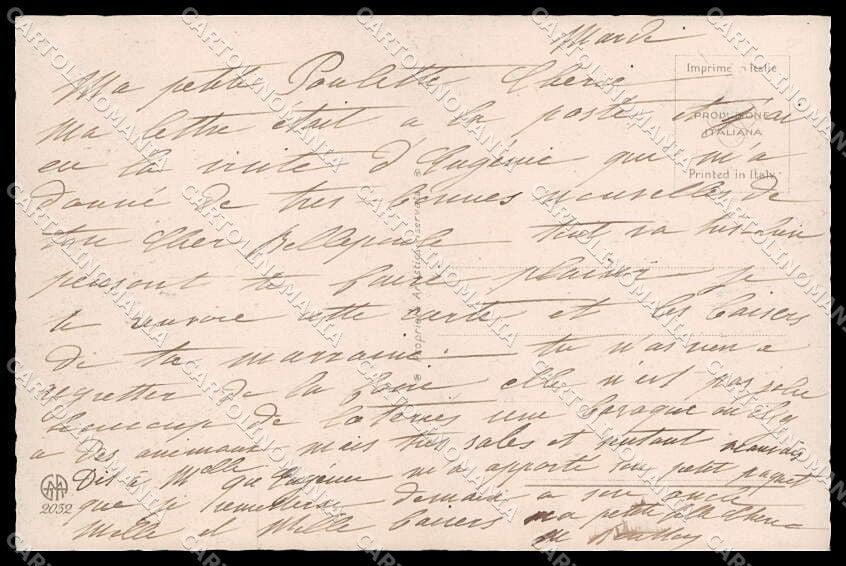 Mardi
Ma petite Poulette Cherie
Ma lettre était a la poste et j'ai
eu la visite d'Eugénie qui m'a
donné de tres bonnes nouvelles de
ton Cher tout
pensant te faire plaisir je
te envoie cette carte et les baisers
de ta marraine. tu n'as rien a
regretter de la foire elle n'est pas
beaucoup de loteries une baraque ou il y
a des animaux mais tres sales et
Dis à Melle que Eugénie m'a apporté son petit paquet
que je remettrai demain a son oncle
Mille et Mille baisers ma petite
Imprimé en Italie
PRODUZIONE
ITALIANA
Printed in Italy
Proprietà Artistica riservata
2032
CARTOLINOMANIA